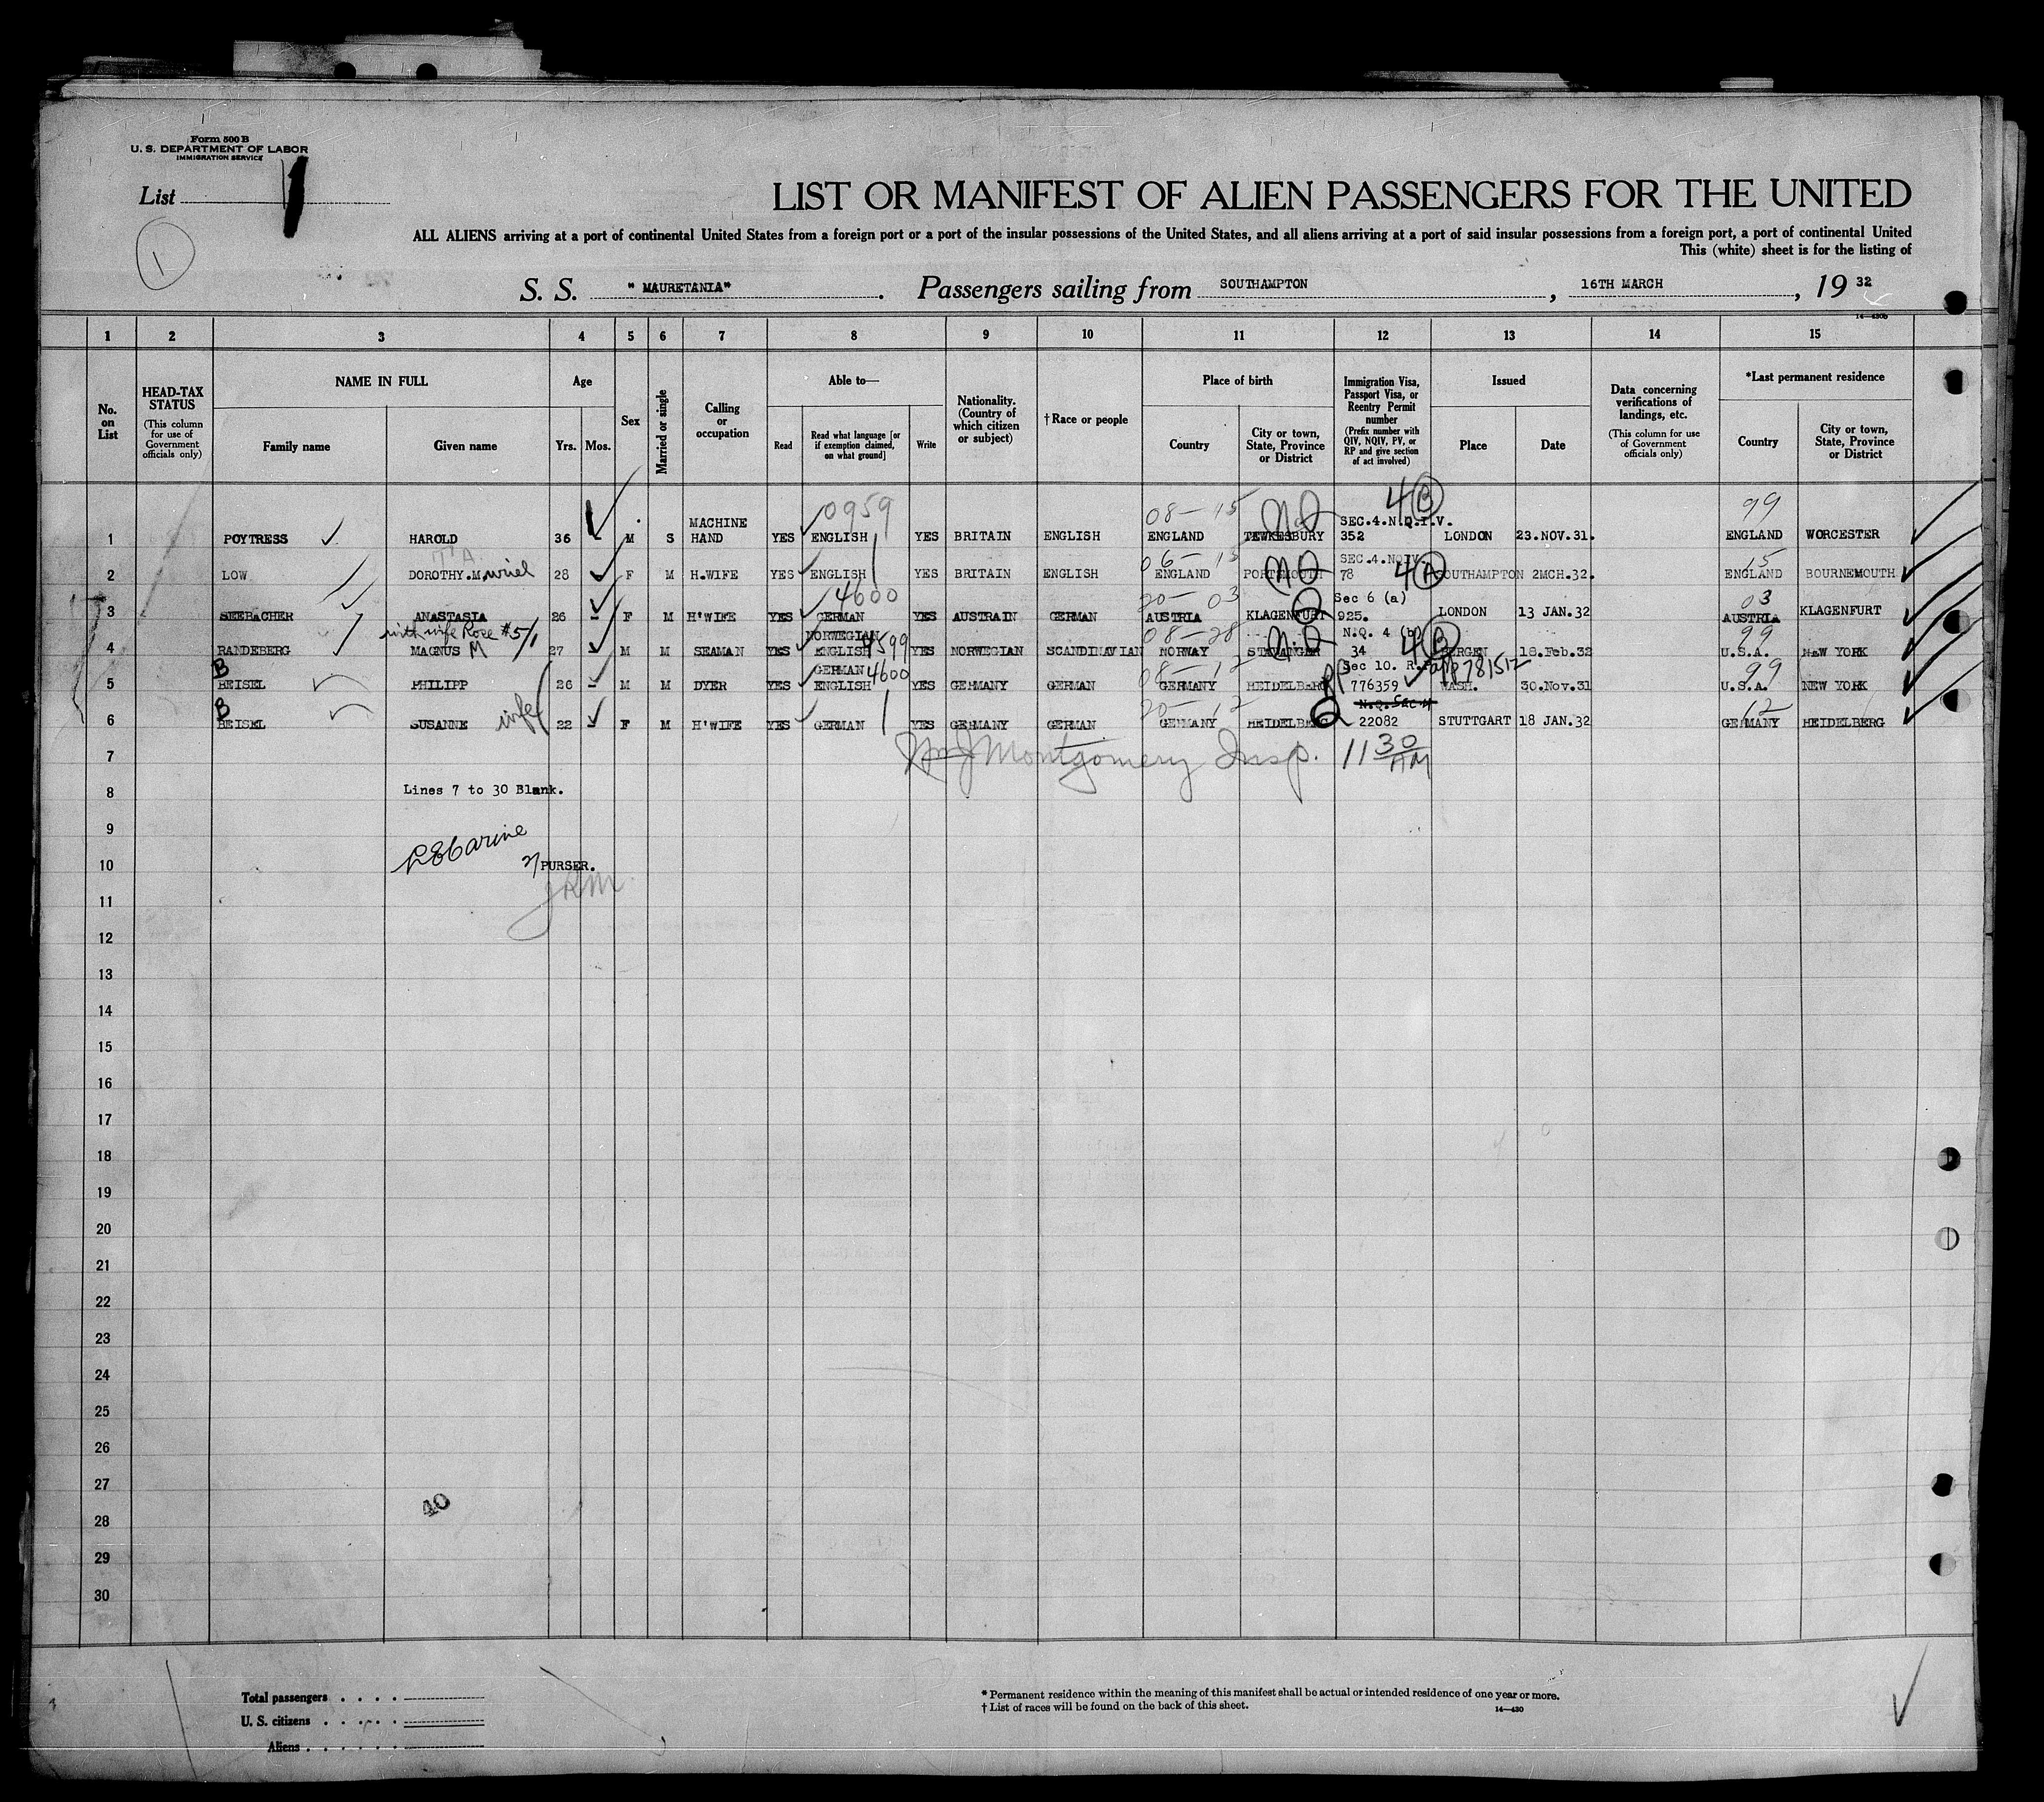 Form 500 B
U. S. DEPARTMENT OF LABOR
IMMIGRATION SERVICE
List 1
1
LIST OR MANIFEST OF ALIEN PASSENGERS FOR THE UNITED
ALL ALIENS arriving at a port of continental United States from a foreign port or a port of the insular possessions of the United States, and all aliens arriving at a port of said insular possessions from a foreign port, a port of continental United
This (white) sheet is for the listing of
S. S. "MAURETANIA". Passengers sailing from SOUTHAMPTON, 16TH MARCH, 19 32
14—430b
1 2 3 4 5 6 7 8 9 10 11 12 13 14 15
No. on List
HEAD-TAX STATUS (This column for use of Government officials only)
NAME IN FULL Family name Given name
Age Yrs. Mos.
Sex
Married or single
Calling or occupation
Able to— Read Read what language [or if exemption claimed, on what ground] Write
Nationality. (Country of which citizen or subject)
† Race or people
Place of birth Country City or town, State, Province or District
Immigration Visa, Passport Visa, or Reentry Permit number (Prefix number with QIV, NQIV, PV, or RP and give section of act involved)
Issued Place Date
Data concerning verifications of landings, etc. (This column for use of Government officials only)
*Last permanent residence Country City or town, State, Province or District
0959 08—15 NQ 4 B 99
MACHINE SEC.4.N.Q.I.V.
1 POYTRESS HAROLD 36 – M S HAND YES ENGLISH YES BRITAIN ENGLISH ENGLAND TEWKESBURY 352 LONDON 23.NOV.31. ENGLAND WORCESTER
06—15 NQ SEC.4.NQIV. 4 A 15
2 LOW DOROTHY.Muriel 28 F M H.WIFE YES ENGLISH YES BRITAIN ENGLISH ENGLAND PORTSMOUTH 78 SOUTHAMPTON 2MCH.32. ENGLAND BOURNEMOUTH
4600 20—03 Q Sec 6 (a) 03
3 SEEBACHER ANASTASIA 26 – F M H'WIFE YES GERMAN YES AUSTRAIN GERMAN AUSTRIA KLAGENFURT 925. LONDON 13 JAN.32 AUSTRIA KLAGENFURT
with wife Rose #5/1 NORWEGIAN 4599 08—28 NQ N.Q. 4 (b) 4 B 99
4 RANDEBERG MAGNUS M 27 M M SEAMAN YES ENGLISH YES NORWEGIAN SCANDINAVIAN NORWAY STAVANGER 34 BERGEN 18.Feb.32 U.S.A. NEW YORK
B GERMAN 4600 08—12 RP Sec 10. R.P. 99
5 BEISEL PHILIPP 26 – M M DYER YES ENGLISH YES GERMANY GERMAN GERMANY HEIDELBERG 776359 WASH. 30.Nov.31 U.S.A. NEW YORK
B 20—12 Q N.Q. SEC 4 12
6 BEISEL SUSANNE wife 22 F M H'WIFE YES GERMAN YES GERMANY GERMAN GERMANY HEIDELBERG 22082 STUTTGART 18 JAN.32 GERMANY HEIDELBERG
7 Wm J Montgomery Insp. 11 30 AM
8 Lines 7 to 30 Blank.
9
10 PURSER.
JRM
11
12
13
14
15
16
17
18
19
20
21
22
23
24
25
26
27
40
28
29
30
Total passengers
U. S. citizens
Aliens
* Permanent residence within the meaning of this manifest shall be actual or intended residence of one year or more.
† List of races will be found on the back of this sheet.
14—430